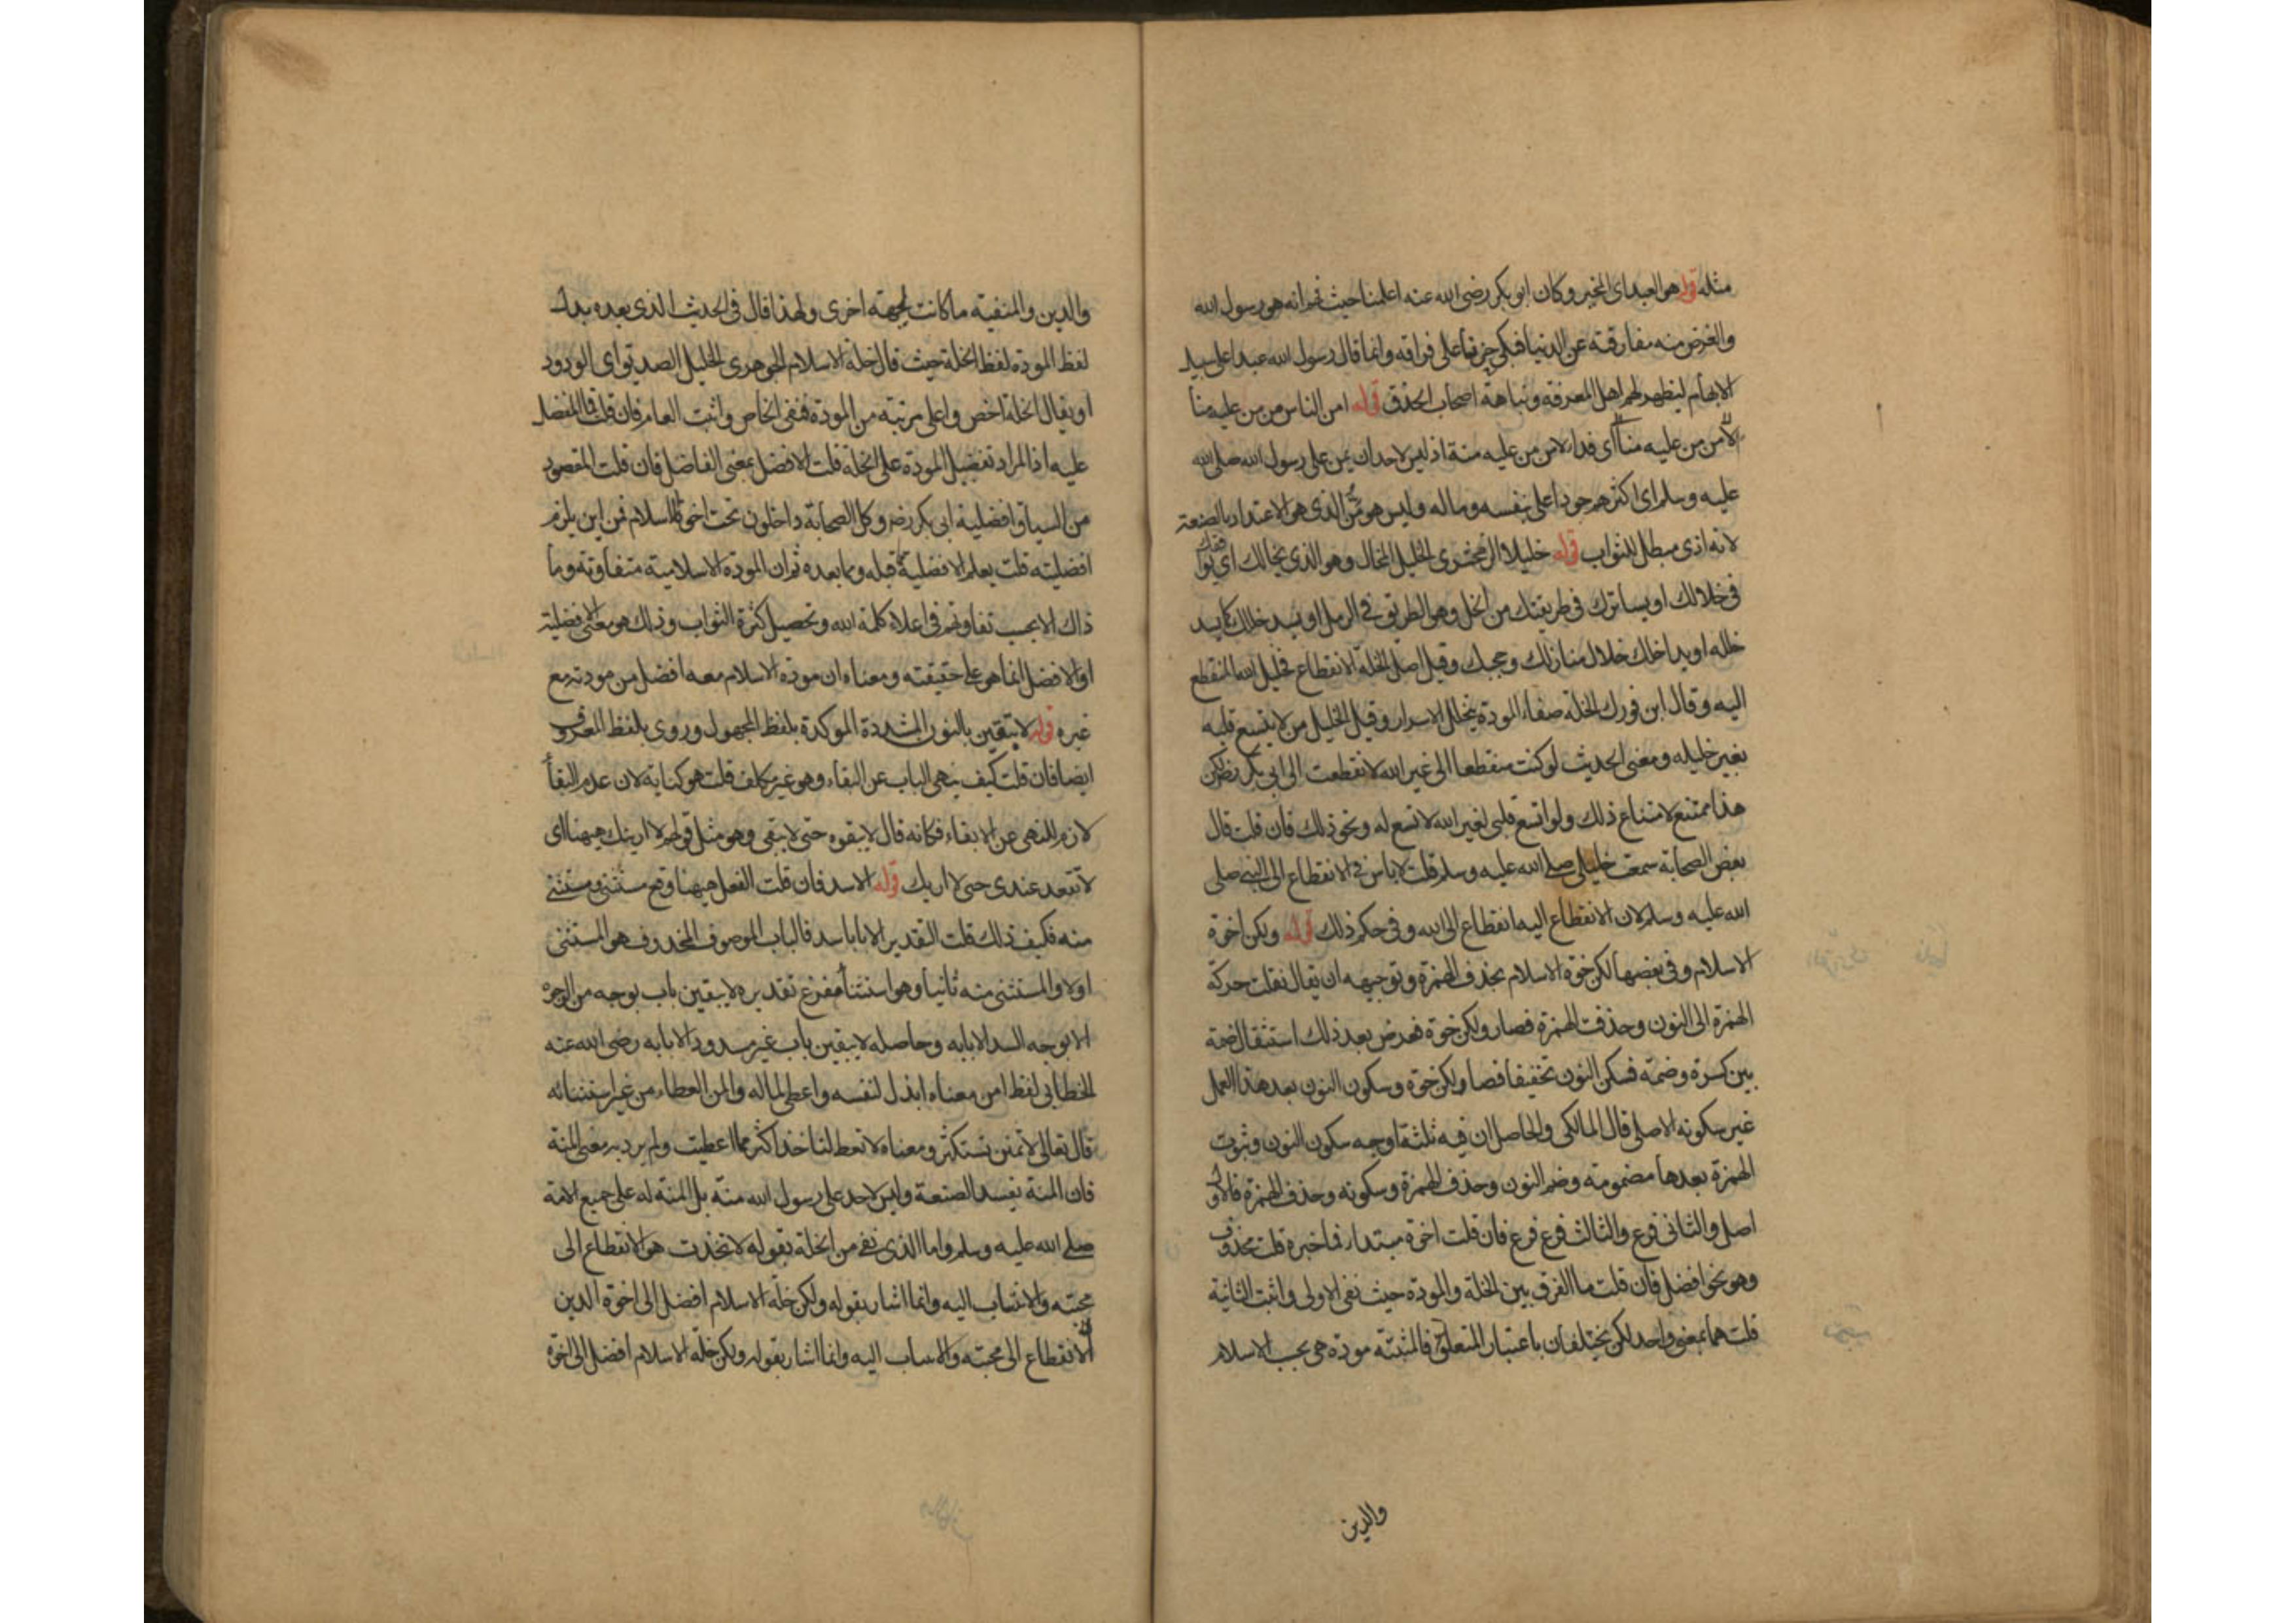 مثله قوله هو العبد اى المخير وكان ابو بكر رضى الله عنه اعلمنا حيث فهم انه هو رسول الله
والغرض منه مفارقته عن الدنيا فبكى حزنا على فراقه وانما قال رسول الله عبدا على سبيل
الابهام ليظهر لهم اهل المعرفة ونباهة اصحاب الحذق قوله امن الناس من من عليه منا
لا من من عليه منة اى فداء لا من من عليه منة اذ ليس لاحد ان يمن على رسول الله صلى الله
عليه وسلم اى اكثرهم جودا على بنفسه وماله وليس هو من المن الذى هو الاعتداد بالصنعة
لانه اذى مبطل للثواب قوله خليلا الزمخشرى الخليل المخال وهو الذى يخالك اى يوافقك
فى خلالك او يسايرك فى طريقتك من الخل وهو الطريق فى الرمل او يسد خللك كما يسد
خلله او يداخلك خلال منازلك وحجبك وقيل اصل الخلة الانقطاع فخليل الله المنقطع
اليه وقال ابن فورك الخلة صفاء المودة بتخلل الاسرار وقيل الخليل من لا يتسع قلبه
بغير خليله ومعنى الحديث لو كنت منقطعا الى غير الله لانقطعت الى ابى بكر رضى لكن
هذا ممتنع لامتناع ذلك ولو اتسع قلبى لغير الله لاتسع له ونحو ذلك فان قلت قال
بعض الصحابة سمعت خليلى صلى الله عليه وسلم قلت لا باس فى الانقطاع الى النبى صلى
الله عليه وسلم لان الانقطاع اليه انقطاع الى الله وفى حكم ذلك قوله ولكن اخوة
الاسلام وفى بعضها لكن خوة الاسلام بحذف الهمزة وتوجيهه ان يقال نقلت حركة
الهمزة الى النون وحذفت الهمزة فصار ولكن خوة فعرض بعد ذلك استثقال ضمة
بين كسرة وضمة فسكن النون تخفيفا فصار ولكن خوة وسكون النون بعد هذا العمل
غير سكونه الاصلى قال المالكى والحاصل ان فيه ثلثة اوجه سكون النون وثبوت
الهمزة بعدها مضمومة وضم النون وحذف الهمزة وسكونه وحذف الهمزة فالاول
اصل والثانى فرع والثالث فرع فرع فان قلت اخوة مبتداء فما خبره قلت محذوف
وهو نحو افضل فان قلت ما الفرق بين الخلة والمودة حيث نفى الاولى واثبت الثانية
قلت هما بمعنى واحد لكن يختلفان باعتبار المتعلق فالمثبتة مودة هى بحسب الاسلام
والدين
والدين والمنفية ما كانت لجهة اخرى ولهذا قال فى الحديث الذى بعده بدل
لفظ المودة لفظ الخلة حيث قال خلة الاسلام الجوهرى الخليل الصديق اى الودود
او يقال الخلة اخص واعلى مرتبة من المودة فنفى الخاص واثبت العام فان قلت فما المفضل
عليه اذ المراد تفضيل المودة على الخلة قلت الافضل بمعنى الفاضل فان قلت المقصود
من السياق افضلية ابى بكر رضى وكل الصحابة داخلون تحت اخوة الاسلام فمن اين يلزم
افضليته قلت يعلم الافضلية مما قبله ومما بعده ثم ان المودة الاسلامية متفاوتة وما
ذاك الا بحسب تفاوتهم فى اعلاء كلمة الله وتحصيل كثرة الثواب وذلك هو معنى الافضلية
او الافضل انما هو على حقيقته ومعناه ان مودة الاسلام معه افضل من مودته مع
غيره قوله لا يبقين بالنون المشددة الموكدة بلفظ المجهول وروى بلفظ المعروف
ايضا فان قلت كيف ينهى الباب عن البقاء وهو غير مكلف قلت هو كناية لان عدم البقاء
لازم للنهى عن الابقاء فكانه قال لا يبقوه حتى لا يبقى وهو مثل قولهم لا ارينك ههنا اى
لا تقعد عندى حتى لا اريك قوله الا سد فان قلت الفعل ههنا وقع مستثنى ومستثنى
منه فكيف ذلك قلت التقدير الا بابا سد فالباب الموصوف المحذوف هو المستثنى
اولا والمستثنى منه ثانيا وهو استثناء مفرغ تقديره لا يبقين باب بوجه من الوجوه
الا بوجه السد الا بابه وحاصله لا يبقين باب غير مسدود الا بابه رضى الله عنه
الخطابى لفظ امن معناه ابذل لنفسه واعطى لماله والمن العطاء من غير استثنائه
قال تعالى لا تمنن تستكثر ومعناه لا تعط لتاخذ اكثر مما اعطيت ولم يرد به معنى المنة
فان المنة تفسد الصنعة وليس لاحد على رسول الله منة بل المنة له على جميع الامة
صلى الله عليه وسلم واما الذى نفى من الخلة بقوله لاتخذت هو الانقطاع الى
محبته والانتساب اليه وانما اشار بقوله ولكن خلة الاسلام افضل الى اخوة الدين
الانقطاع الى محبته والانتساب اليه وانما اشار بقوله ولكن خلة الاسلام افضل الى اخوة